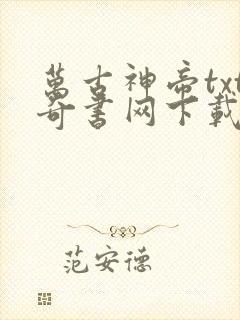 萬古神帝txt
奇書网下載
范安德